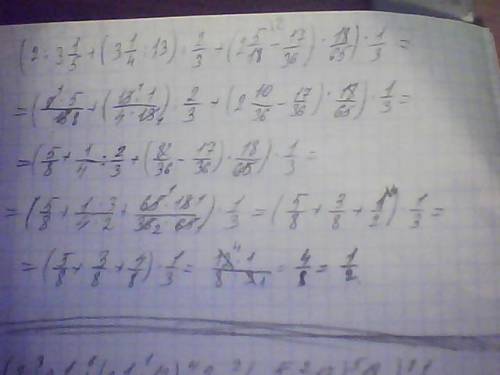 (2 : 3 1/5 + (3 1/4 : 13) : 2/3 + (2 5/18 - 17/36) · 18/65) · 1/3 =
= (2 · 5/16 8 + (13 · 1/4 · 13) : 2/3 + (2 10/36 - 17/36) · 18/65) · 1/3 =
= (5/8 + 1/4 : 2/3 + (82/36 - 17/36) · 18/65) · 1/3 =
= (5/8 + 1 · 3/4 · 2 + 65 · 18/36 · 65) · 1/3 = (5/8 + 3/8 + 1/2) · 1/3 =
= (5/8 + 3/8 + 4/8) · 1/3 = 12 · 1/8 · 3 = 4/8 = 1/2